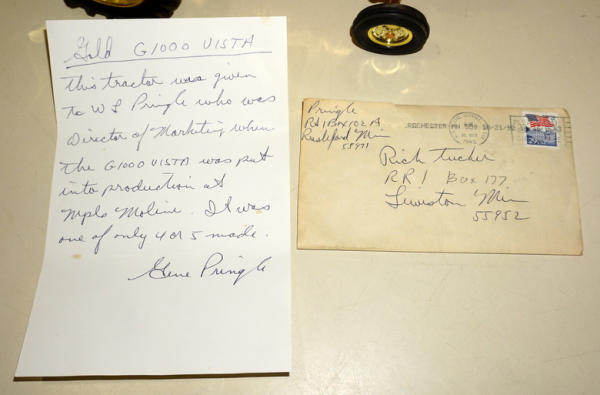 Gold G1000 VISTA
This tractor was given
To W L Pringle who was
Director of Marketing when
The G1000 VISTA was put
into production at
Mpls Moline. It was
one of only 4 or 5 made.
Gene Pringle
Pringle
Rt 1 Box 102 A
Rushford Minn
55971
ROCHESTER MN 559
Rich Tucker
RR 1 Box 177
Lewiston Minn
55952